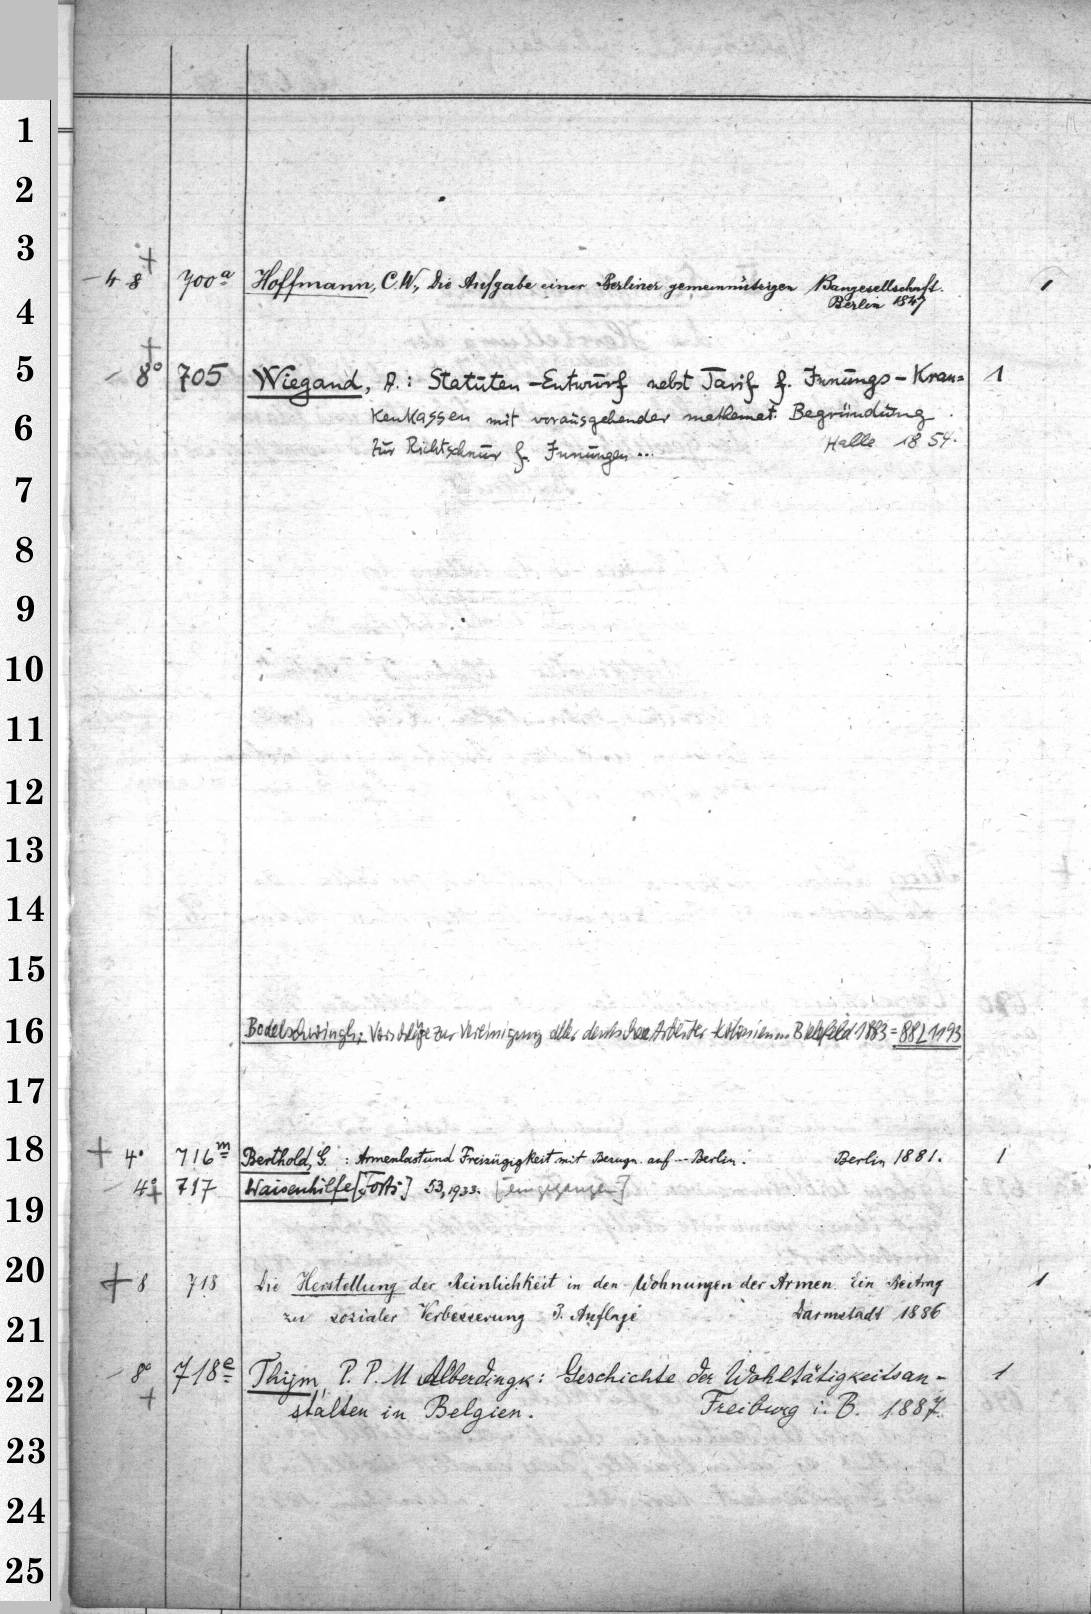 1
2
3
– 4 8 + 700a Hoffmann, C.W., Die Aufgabe einer Berliner gemeinnützigen Baugesellschaft. 1
4 Berlin 1847
5 – 8° + 705 Wiegand, A.: Statuten-Entwurf nebst Tarif f. Innungs-Kran= 1
6 kenkassen mit vorausgehender mathemat. Begründung.
zur Richtschnur f. Innungen... Halle 1854.
7
8
9
10
11
12
13
14
15
16 Bodelschwingh: Vorschläge zur Vereinigung aller deutschen Arbeiter-kolonien Bielefeld 1883 = 88 L 1193
17
18 + 4° 716m Berthold, G. : Armenlast und Freizügigkeit mit Bezugn. auf -- Berlin. Berlin 1881. 1
– 4° + 717 Waisenhilfe [Forts.] 53, 1933. [eingegangen]
19
20 + 8 718 Die Herstellung der Reinlichkeit in den Wohnungen der Armen. Ein Beitrag 1
21 zu sozialer Verbesserung 3. Auflage Darmstadt 1886
22 – 8° + 718e Thijm, P. P. M Alberdingk: Geschichte der Wohltätigkeitsan- 1
stalten in Belgien. Freiburg i. B. 1887.
23
24
25